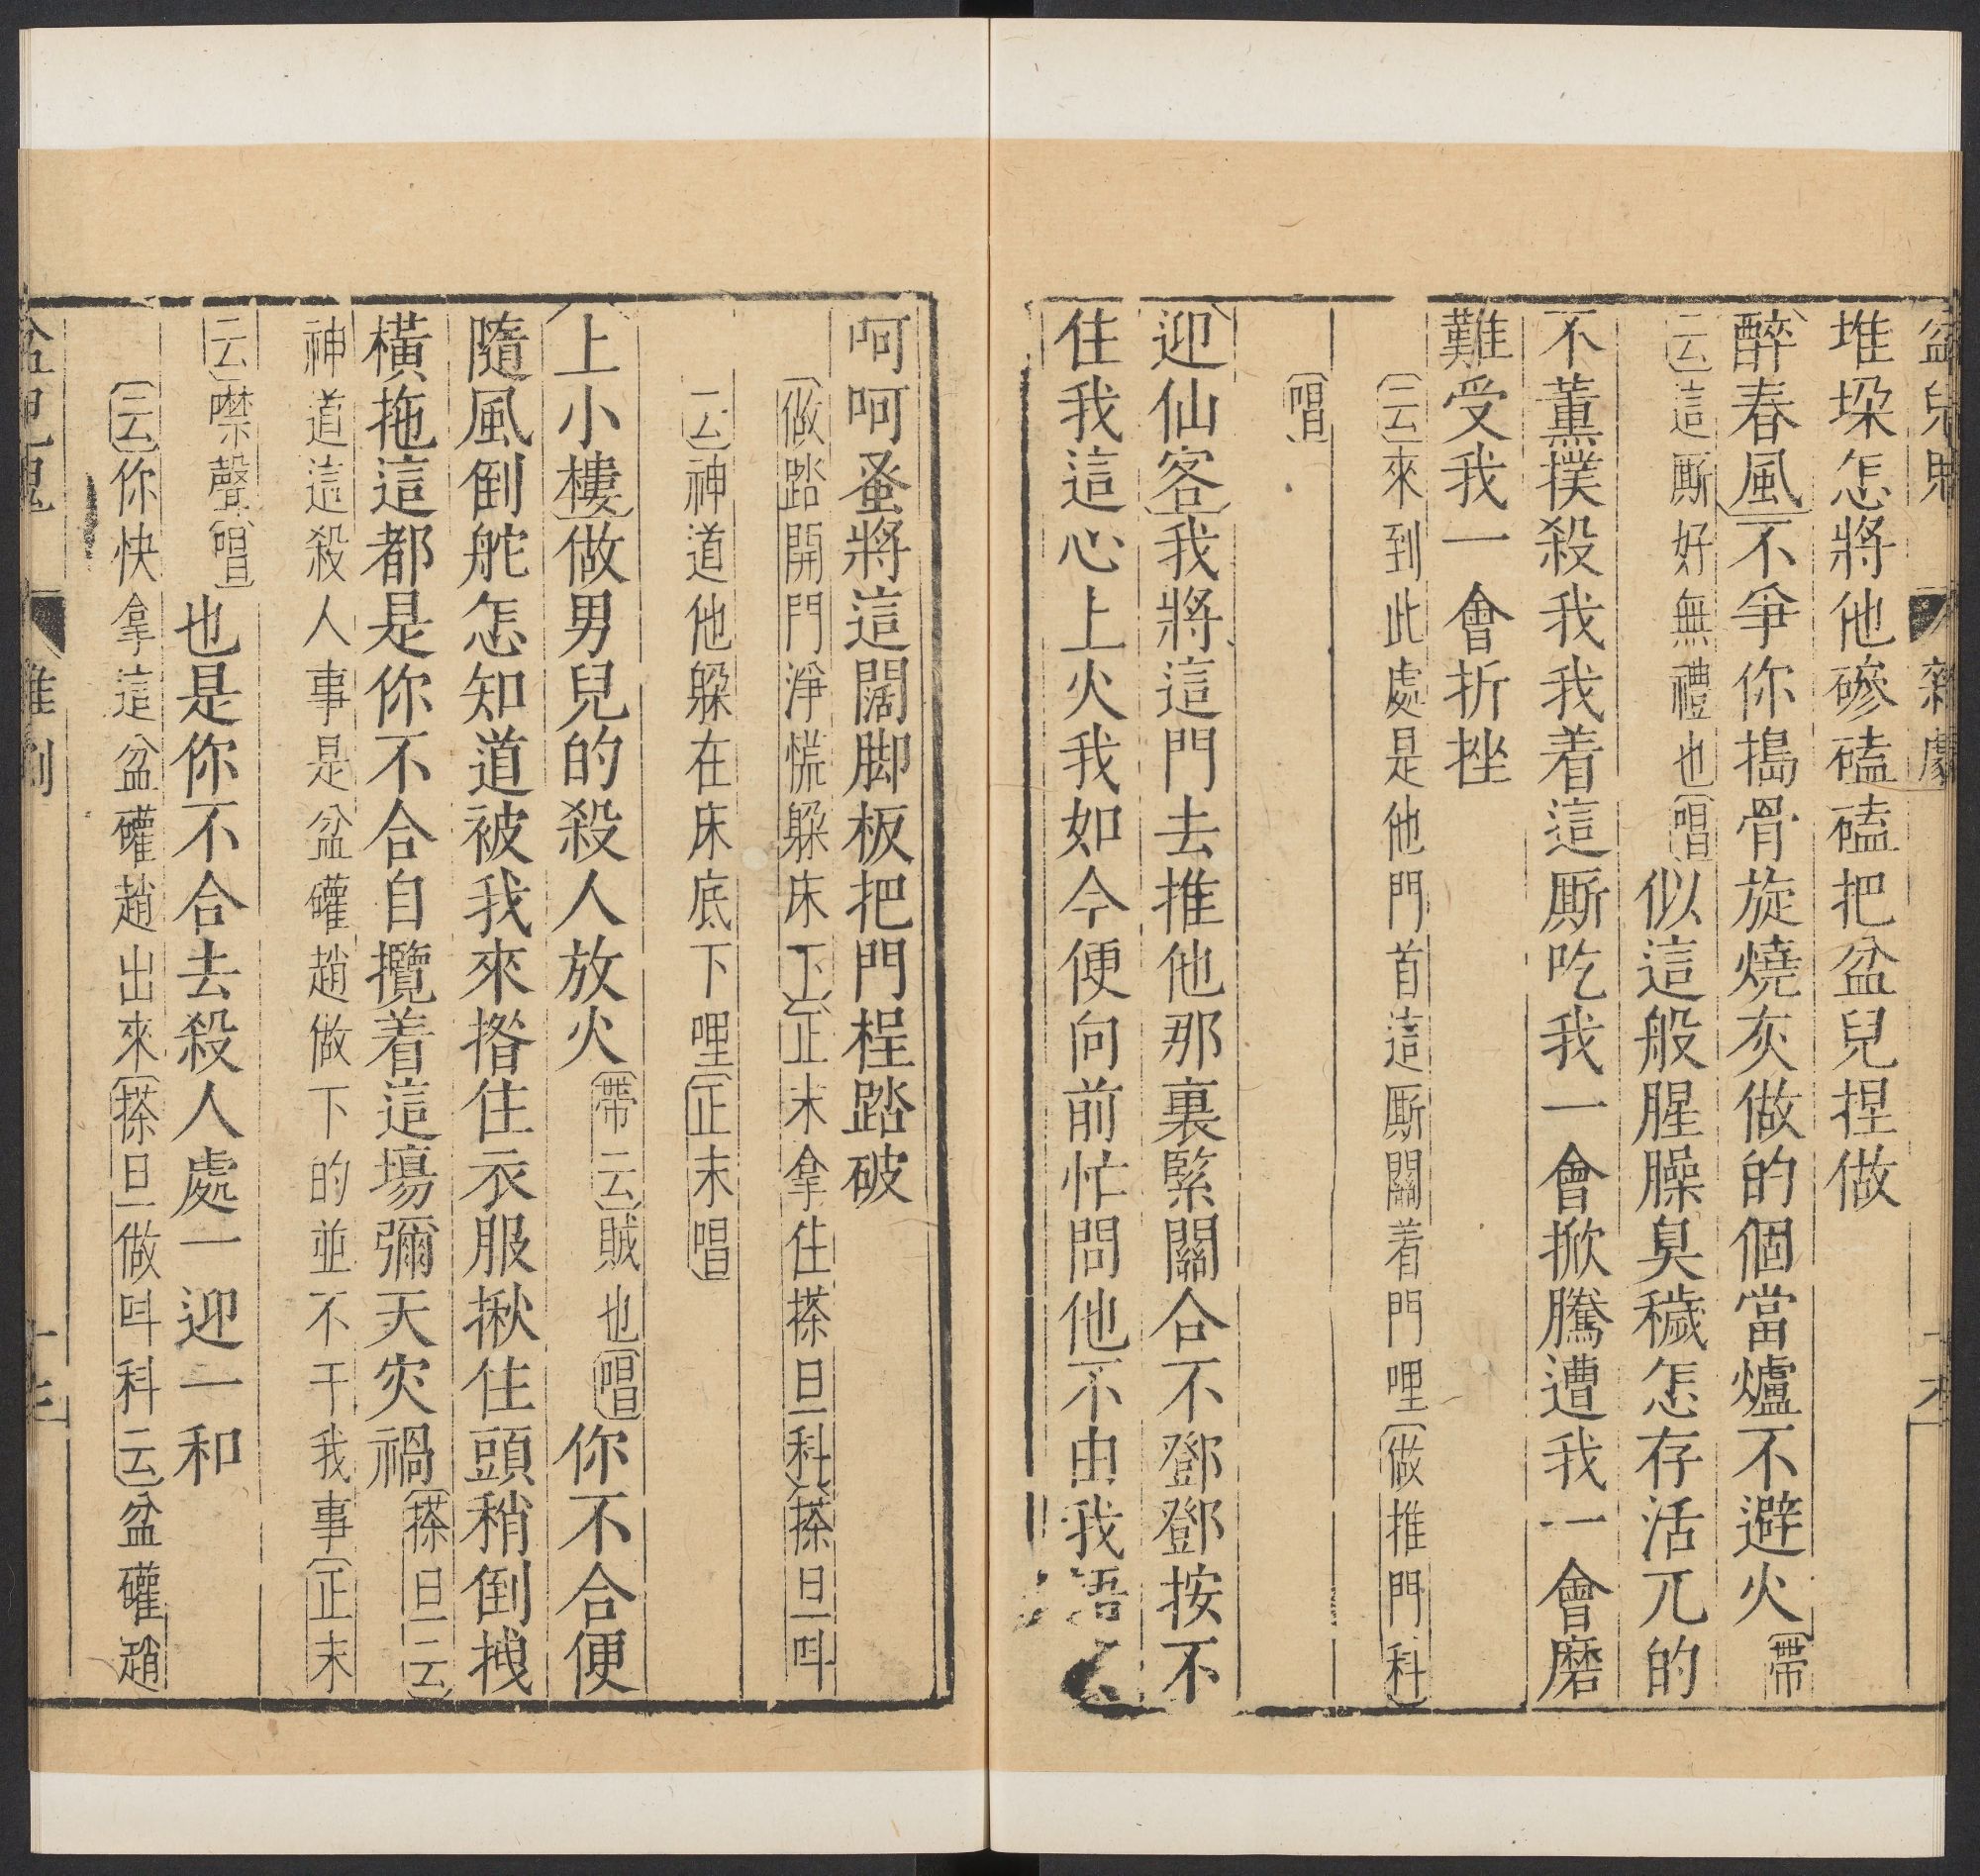 盆兒鬼 雜劇
堆垛怎將他磣磕磕把盆兒捏做
醉春風不爭你搗骨旋燒灰做的個當爐不避火帶
云這厮好無禮也唱似這般腥臊臭穢怎存活兀的
不薰撲殺我我着這厮吃我一會掀騰遭我一會磨
難受我一會折挫
云來到此處是他門首這厮關着門哩做推門科
唱
迎仙客我將這門去推他那裏緊關合不鄧鄧按不
住我這心上火我如今便向前忙問他不由我語
呵呵蚤將這闊脚板把門桯踏破
做踏開門淨慌躱床下正末拿住搽旦科搽旦呌
云神道他躱在床底下哩正末唱
上小樓做男兒的殺人放火帶云賊也唱你不合便
隨風倒舵怎知道被我來撍住衣服揪住頭稍倒拽
橫拖這都是你不合自攬着這場彌天灾禍搽旦云
神道這殺人事是盆礶趙做下的並不干我事正末
云噤聲唱也是你不合去殺人處一迎一和
云你快拿這盆礶趙出來搽旦做呌科云盆礶趙
盆兒鬼 雜劇